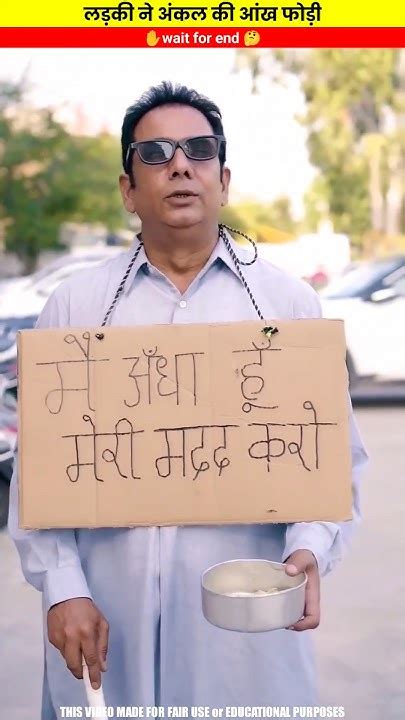 लड़की ने अंकल की आंख फोड़ी
✋wait for end 🤔
मैं अँधा हूँ
मेरी मदद करो
THIS VIDEO MADE FOR FAIR USE or EDUCATIONAL PURPOSES